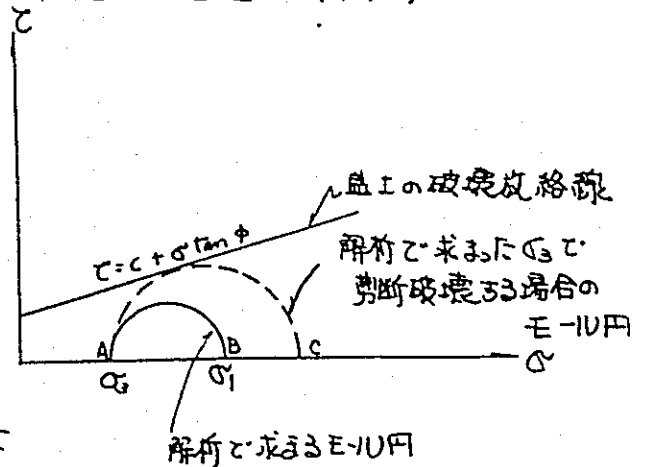 τ
盛土の破壊放絡線
τ=c+σtanφ
解析で求まったσ3で
剪断破壊する場合の
モール円
A
B
C
σ
σ3
σ1
解析で求まるモール円